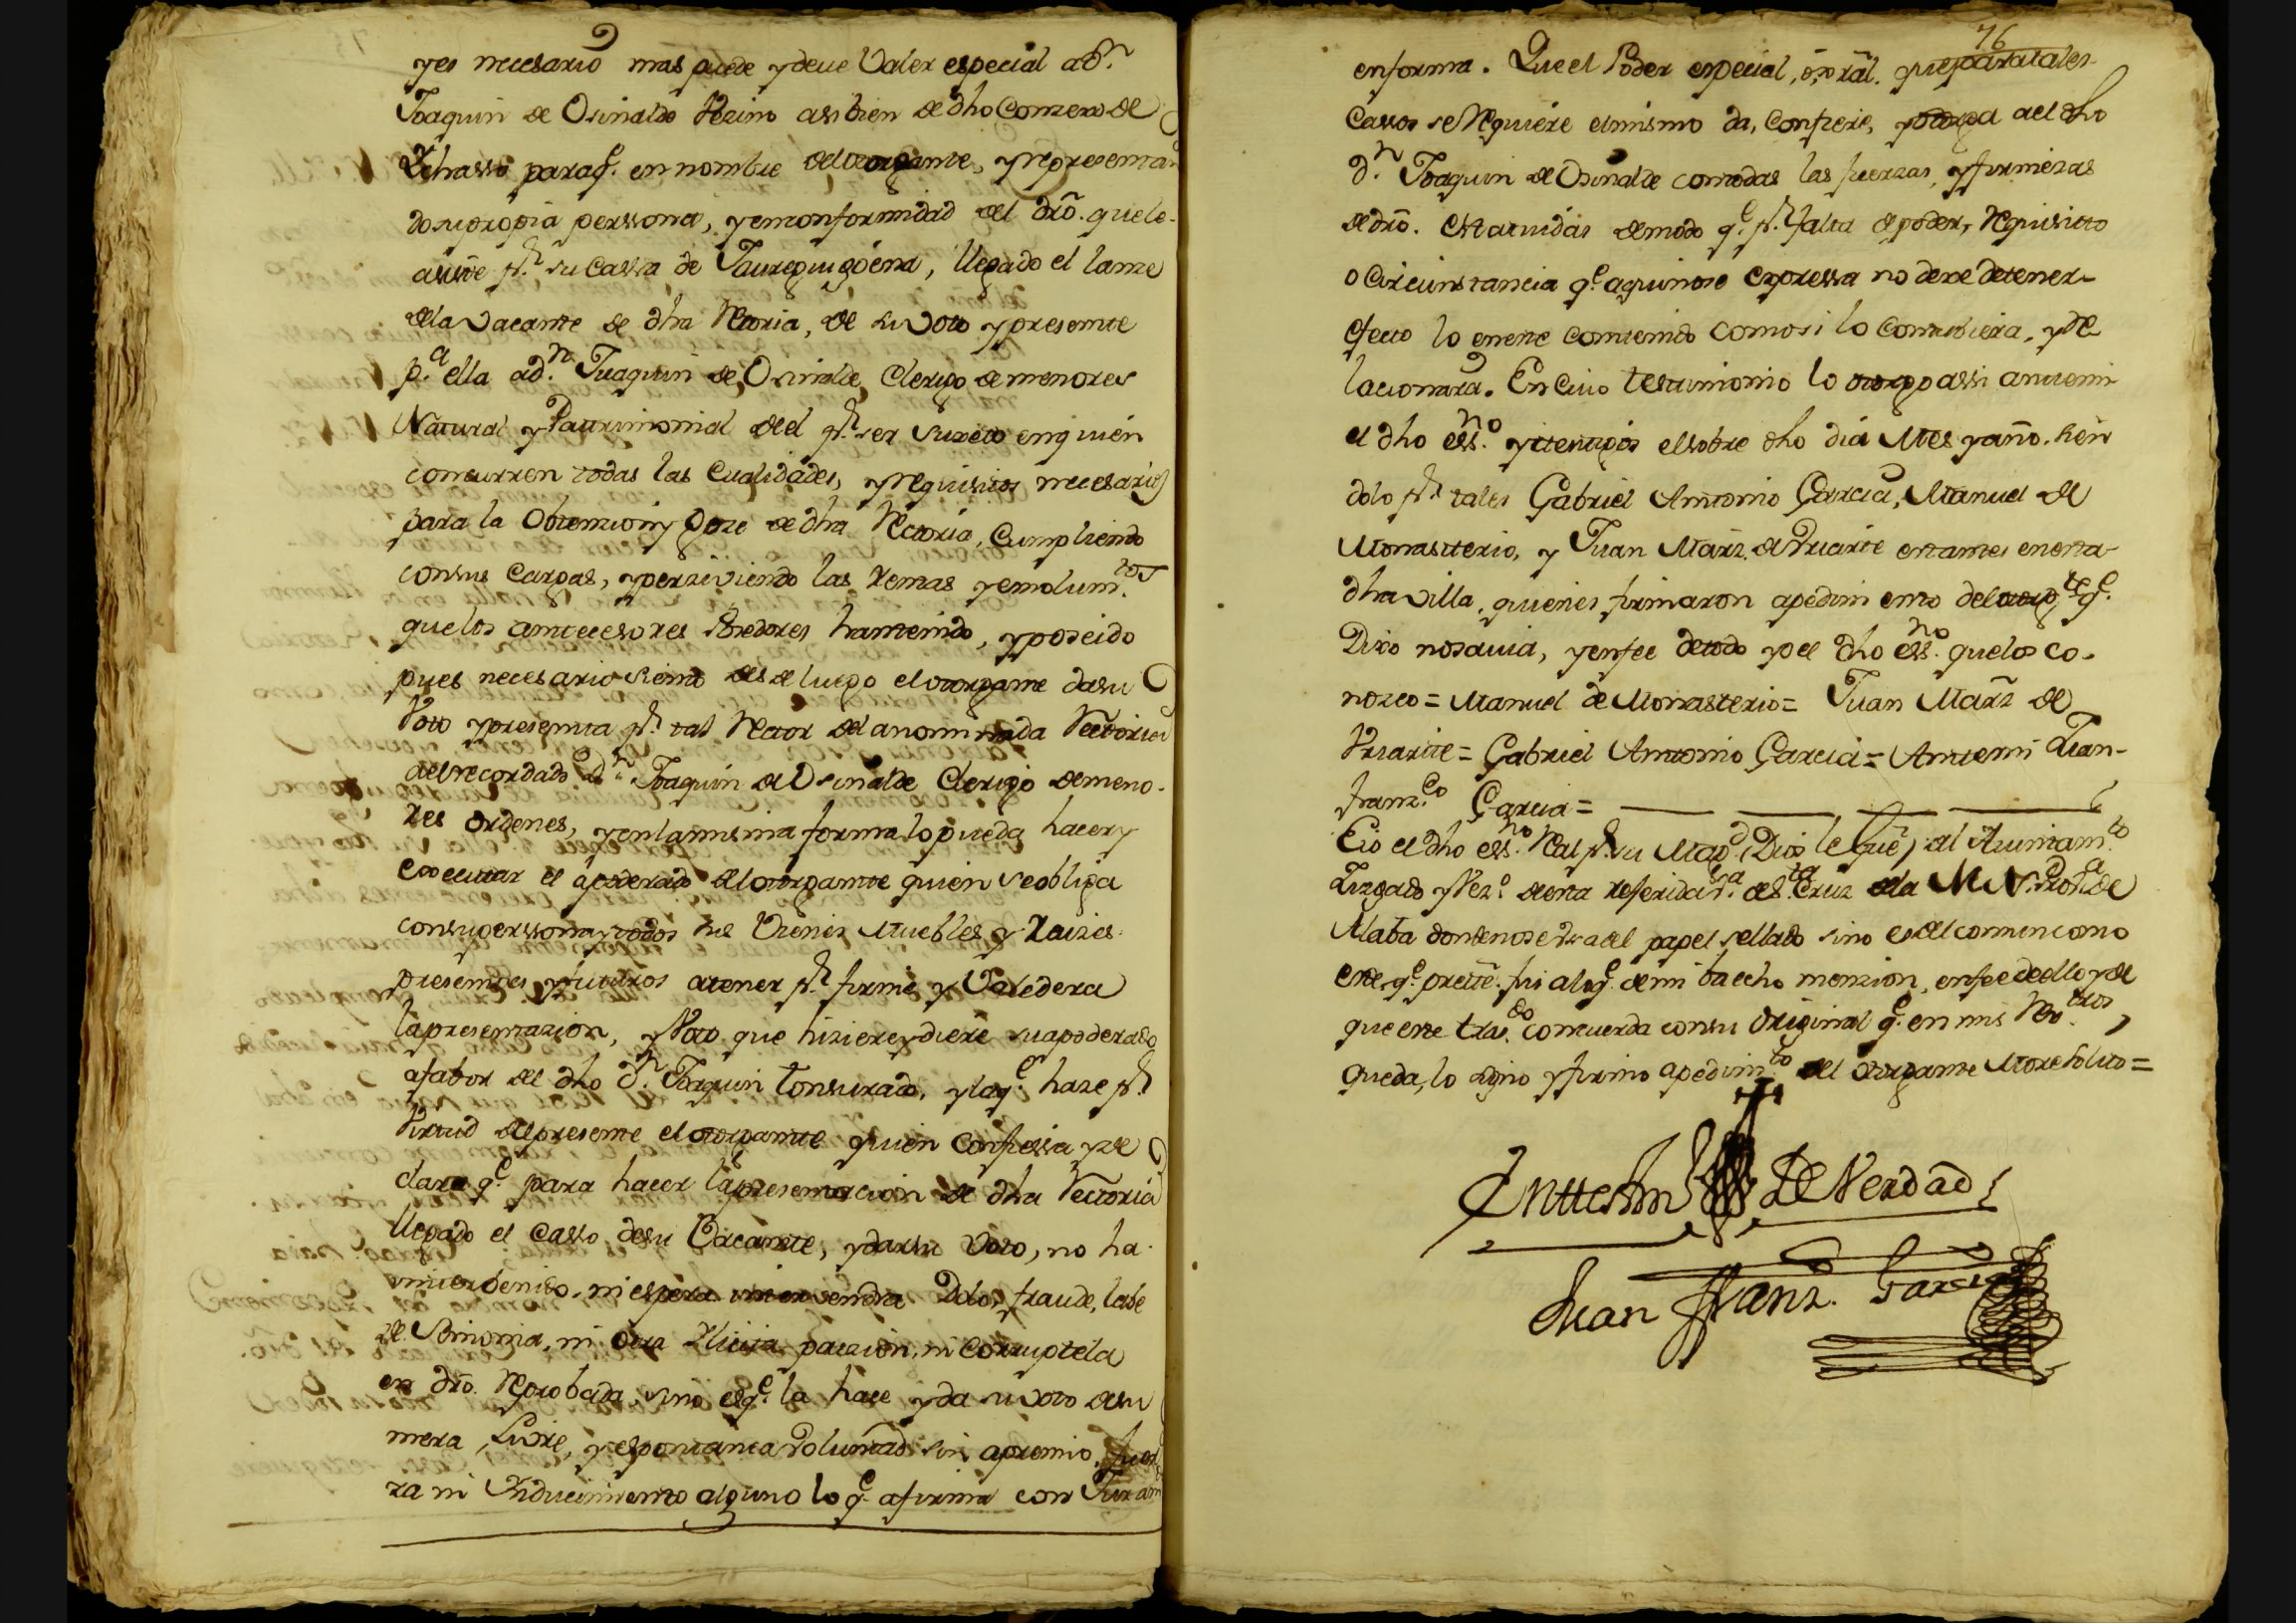 yes necesario mas puede y deve Valer especial a Dn.
Joaquin de Osinalde Vezino assi bien de dho Conzexo de
Lehasso paraqe. en nombre del otorgante, y representan
do su propia perssona, y en conformidad del dro. que le
assiste pr. su Cassa de Jaureguigoena, llegado el lanze
de la Vacante de dha Retoria, de su Voto y presente
pa. ella a dn. Juaquin de Osinalde Clerigo de menores
Natural y Patrimonial del pr. ser Sugeto en quien
concurren todas las Cualidades, y requisitos necesarios
para la Obtencion y Goze de dha Rectoria, Cumpliendo
con sus Cargas, y perziviendo las Rentas y emolumtos.
que los antecesores Rectores han tenido, y poseido
pues necesario siendo desde luego el otorgante da su
Voto y presenta pr. tal Rector de la nominada Rectoria
del recordado Dn. Joaquin de Osinalde Clerigo de meno-
res ordenes, y en la misma forma lo pueda hacer y
executar el apoderado del otorgante quien se obliga
con su perssona y todos sus Vienes Muebles y Raizes
presentes y futuros a tener pr. firme y Valedera
la presentazion, y Voto que hiziere y diere su apoderado
a fabor del dho dn. Joaquin Tonsurado, y la qe. haze pr.
Virtud del presente el otorgante quien Confiessa y de
clara qe. para hacer la presentacion de dha Rectoria
llegado el Casso de su Vacante, y dar su Voto, no ha
intterbenido, ni espera intervendra Dolo, fraude, labe
de Simonia, ni otra Ylicita paczion, ni Corruptela
en dro. Reprobada, sino esqe. la hace y da su voto de su
mera, Livre, y espontanea Voluntad sin apremio, fuer
za ni Ynducimiento alguno lo qe. afirma con Juram
76
en forma. Que el Poder especial, ò, gral. que para tales
Cassos se Requiere el mismo da, Confiere, y otorga a el dho
dn. Joaquin de Osinalde con todas las fuerzas, y firmezas
de dro. Estatuidas de modo qe. pr. falta de poder, Requisito
o Circunstancia qe. aqui no se Expressa no deve de tener
efecto lo en este contenido como si lo Contubiera, y Re
lacionara. En Cuio testimonio lo otorgo assi ante mi
el dho essno. y testigos el sobre dho dia Mes y año. sien
dolo pr. tales Gabriel Antonio Garcia, Manuel de
Monasterio, y Juan Marz. de Vriarte estantes en esta
dha villa, quienes firmaron a pedimiento del otorgte. qe.
Dixo no savia, y en fee de todo yo el dho essno. que los co-
nozco = Manuel de Monasterio = Juan Marz de
Vriarte = Gabriel Antonio Garcia = Ante mi Juan
franzco Garcia =
E io el dho essno. Real pr. su Magd. (Dios le gue) del Aiuntamto
Juzgado y Vezo. de esta referida Va. de Sta. Cruz de la M. N. Prova. de
Alaba donde no se usa del papel sellado sino es del comun como
este, qe. presste. fui a lo qe. de mi ba echo menzion, en fee de ello y de
que este trasdo concuerda con su Original qe. en mis Reg.tros
queda, lo signo y firmo a pedimto del otorgante More Solito =
En ttestimo. de Verdad
Juan Franz. Garcia